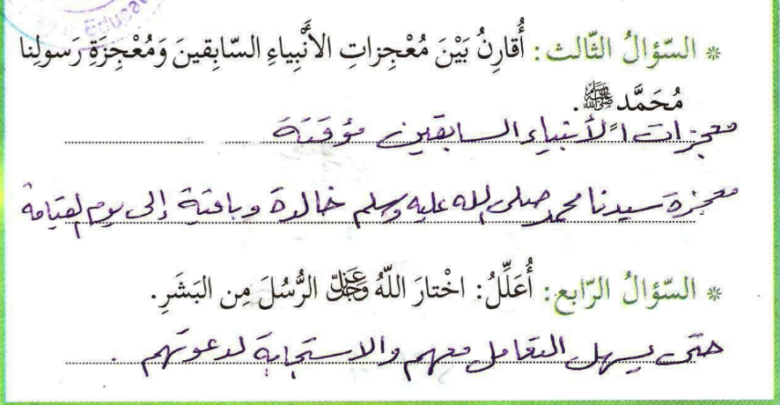 * السّؤالُ الثّالث: أُقارِنُ بَيْنَ مُعْجِزاتِ الأَنْبِياءِ السّابِقينَ وَمُعْجِزَةِ رَسولِنا
مُحَمَّد ﷺ.
معجزات الأنبياء السابقين مؤقتة
معجزة سيدنا محمد صلى الله عليه وسلم خالدة وباقية إلى يوم القيامة
* السّؤالُ الرّابع: أُعَلِّلُ: اخْتارَ اللّهُ عَزَّ وَجَلَّ الرُّسُلَ مِن البَشَرِ.
حتى يسهل التعامل معهم والاستجابة لدعوتهم .